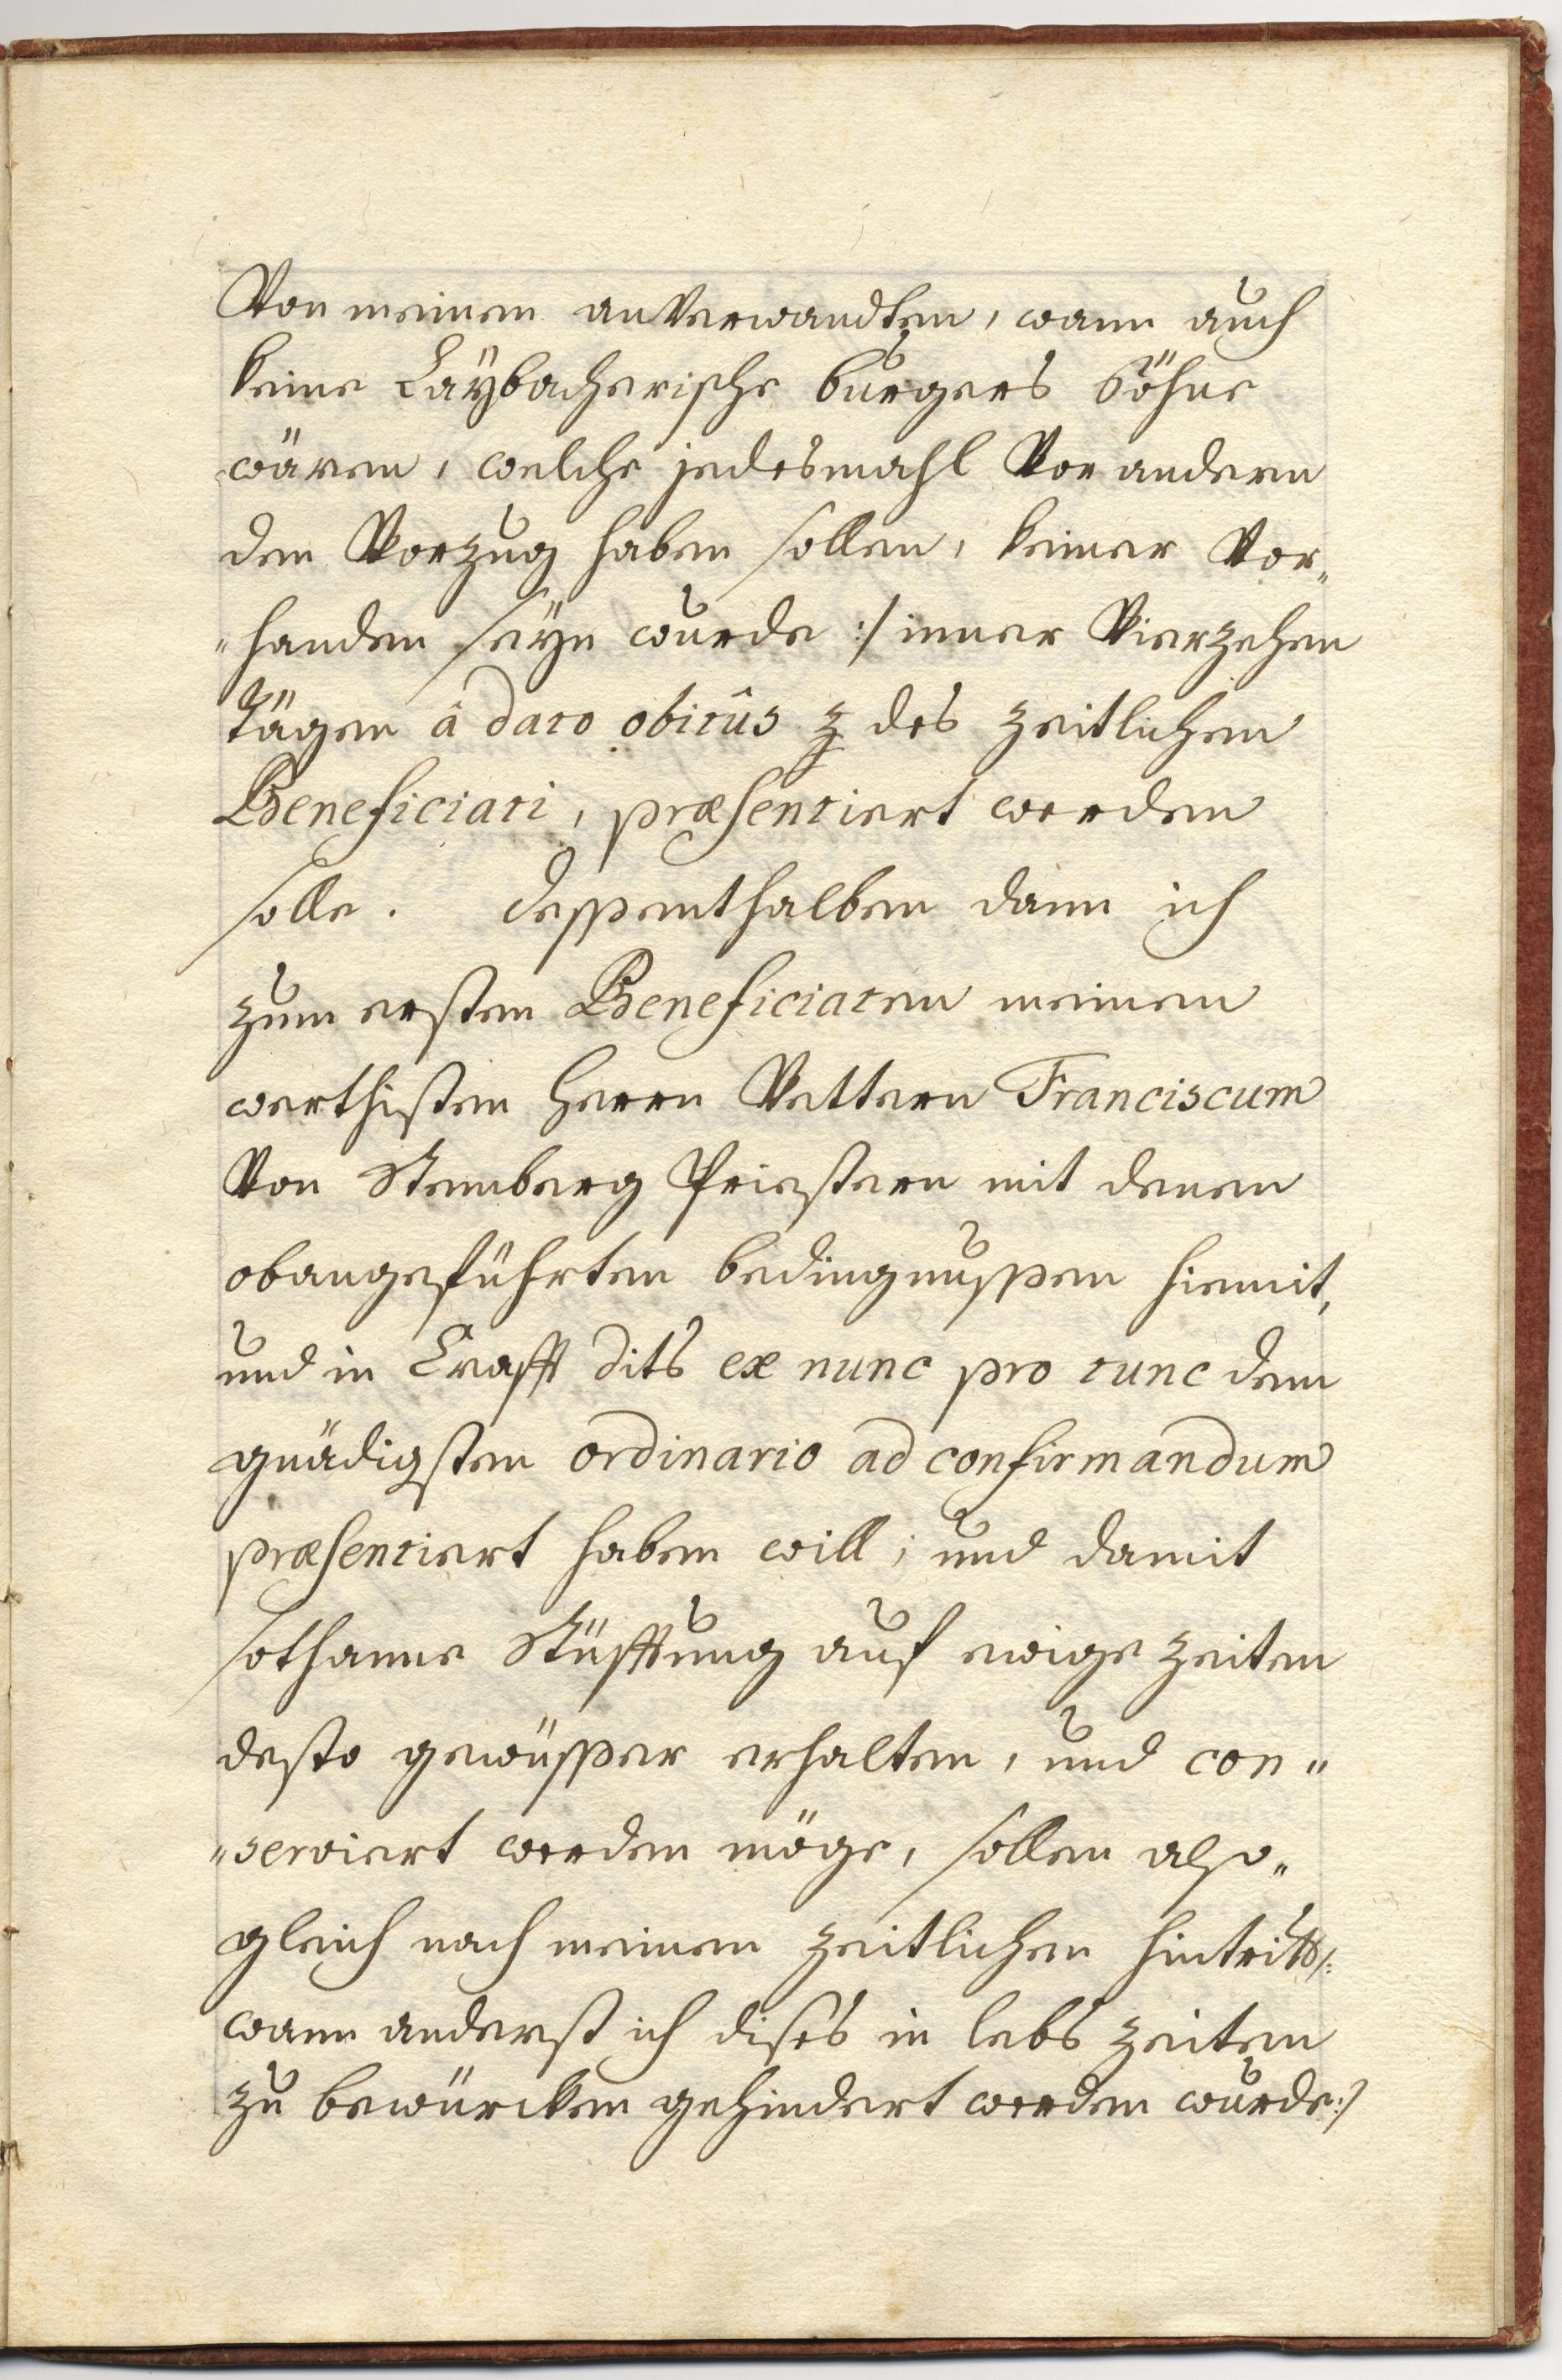 Von meinen anVerwandten, wann auch
keine Laÿbacherische burgers Söhne
wären, welche jedesmahl Vor andern
den Vorzug haben sollen, keiner Vor„
„handen seÿn wurde :/ inner Vierzehen
tägen â dato obitûs des zeitlichen
Beneficiati, præsentiert werden
solle. dessenthalben dann ich
zum ersten Beneficiaten meinen
werthisten Herrn Vettern Franciscum
Von Stemberg Priestern mit denen
obangeführten bedingnussen hiemit,
und in Crafft dits ex nunc pro tunc dem
gnädigsten ordinario ad confirmandum
præsentiert haben will; und damit
sothanne Stüfftung auf ewige zeiten
desto gewüsser erhalten, und con„
„serviert werden möge, sollen also„
gleich nach meinen zeitlichen hintritt /:
wann anderst ich dises in lebs zeiten
zu bewürcken gehindert werden wurde :/